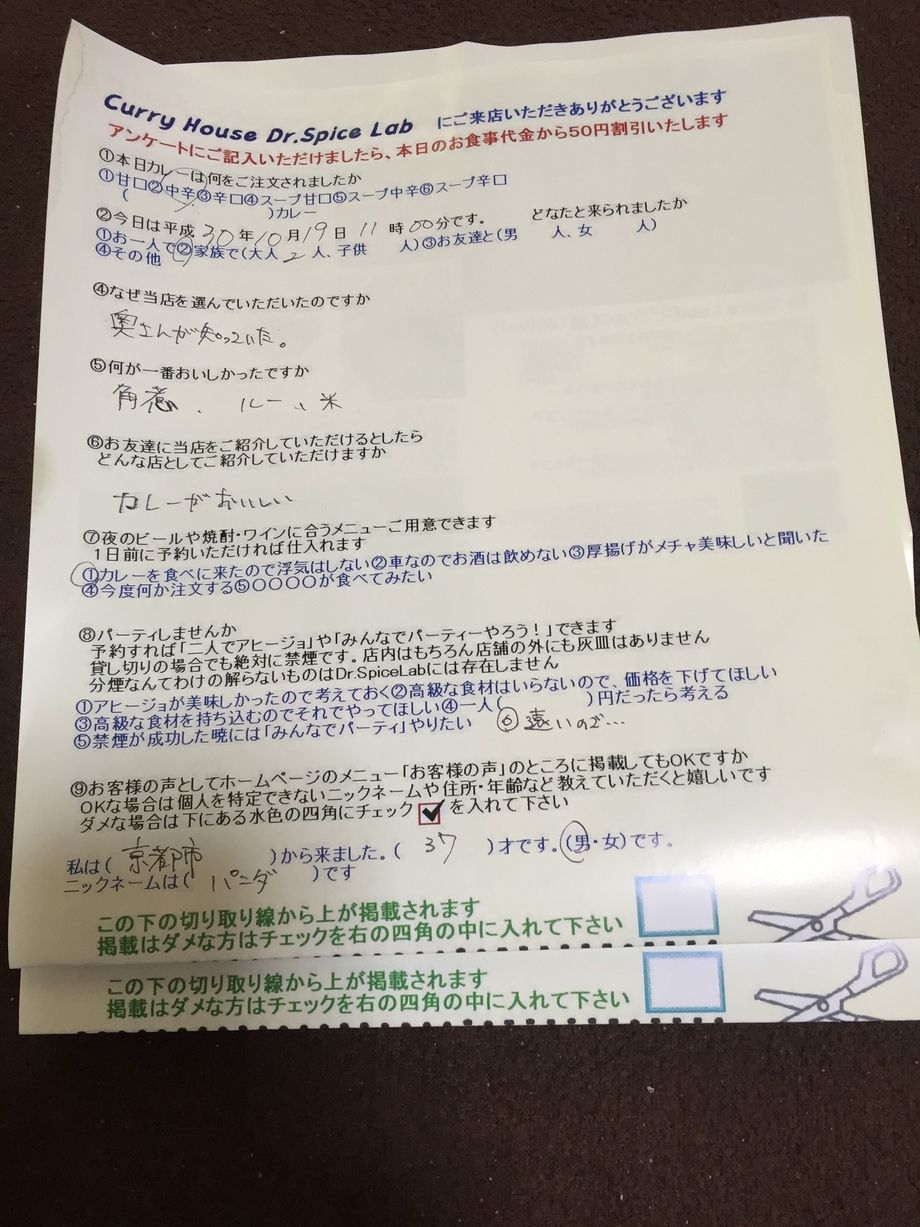 Curry House Dr.Spice Lab にご来店いただきありがとうございます
アンケートにご記入いただけましたら、本日のお食事代金から50円割引いたします
①本日カレーは何をご注文されましたか
①甘口②中辛③辛口④スープ甘口⑤スープ中辛⑥スープ辛口
( )カレー
②今日は平成 30 年 10 月 19 日 11 時 00 分です。 どなたと来られましたか
①お一人で②家族で(大人 2 人、子供 人)③お友達と(男 人、女 人)
④その他
④なぜ当店を選んでいただいたのですか
奥さんが知っていた。
⑤何が一番おいしかったですか
角煮、ルー、米
⑥お友達に当店をご紹介していただけるとしたら
どんな店としてご紹介していただけますか
カレーがおいしい
⑦夜のビールや焼酎・ワインに合うメニューご用意できます
1日前に予約いただければ仕入れます
①カレーを食べに来たので浮気はしない②車なのでお酒は飲めない③厚揚げがメチャ美味しいと聞いた
④今度何か注文する⑤〇〇〇〇が食べてみたい
⑧パーティしませんか
予約すれば「二人でアヒージョ」や「みんなでパーティーやろう！」できます
貸し切りの場合でも絶対に禁煙です。店内はもちろん店舗の外にも灰皿はありません
分煙なんてわけの解らないものはDr.SpiceLabには存在しません
①アヒージョが美味しかったので考えておく②高級な食材はいらないので、価格を下げてほしい
③高級な食材を持ち込むのでそれでやってほしい④一人( )円だったら考える
⑤禁煙が成功した暁には「みんなでパーティ」やりたい ⑥遠いので…
⑨お客様の声としてホームページのメニュー「お客様の声」のところに掲載してもOKですか
OKな場合は個人を特定できないニックネームや住所・年齢など教えていただくと嬉しいです
ダメな場合は下にある水色の四角にチェック を入れて下さい
私は( 京都市 )から来ました。( 37 )才です。(男・女)です。
ニックネームは( パンダ )です
この下の切り取り線から上が掲載されます
掲載はダメな方はチェックを右の四角の中に入れて下さい
この下の切り取り線から上が掲載されます
掲載はダメな方はチェックを右の四角の中に入れて下さい